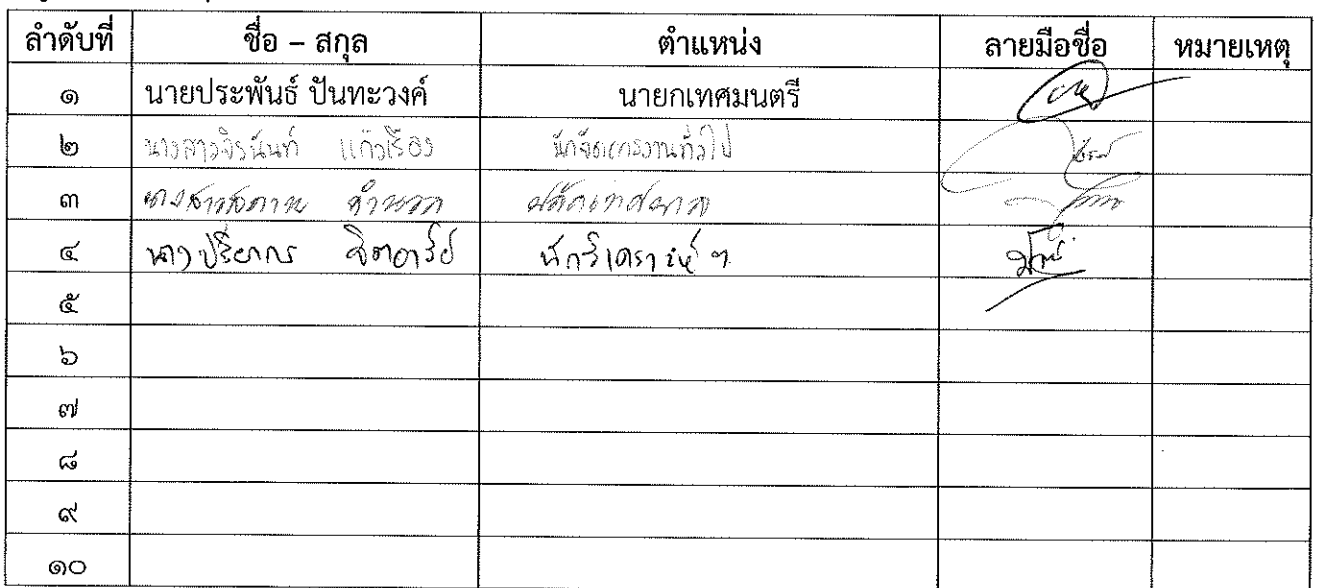 ลำดับที่ ชื่อ – สกุล ตำแหน่ง ลายมือชื่อ หมายเหตุ
๑ นายประพันธ์ ปันทะวงค์ นายกเทศมนตรี
๒ นางสาวจิรนันท์ แก้วเรือง นักจัดการงานทั่วไป
๓ ปลัดเทศบาล
๔ นางปรียากร จิตอารีย์ นักวิเคราะห์ ฯ
๕
๖
๗
๘
๙
๑๐